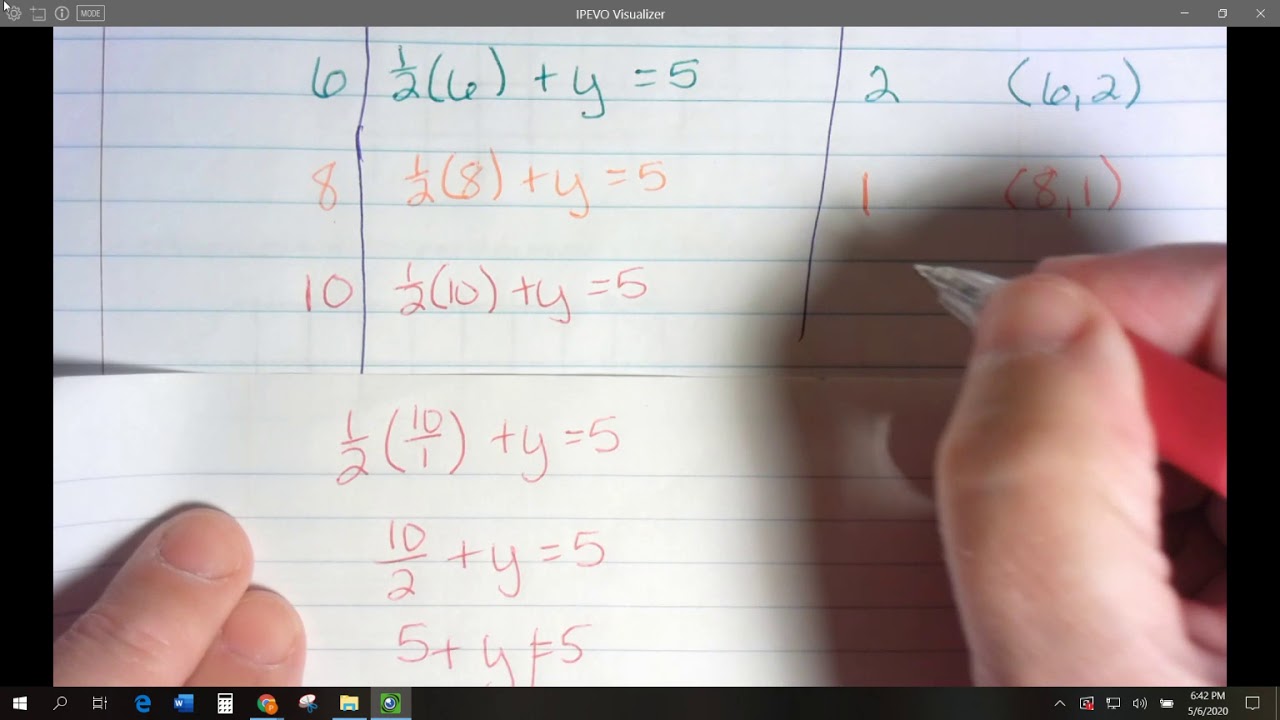 MODE IPEVO Visualizer
6 ½(6) + y = 5 2 (6,2)
8 ½(8) + y = 5 1 (8,1)
10 ½(10) + y = 5
½(10/1) + y = 5
10/2 + y = 5
5 + y = 5
6:42 PM
5/6/2020